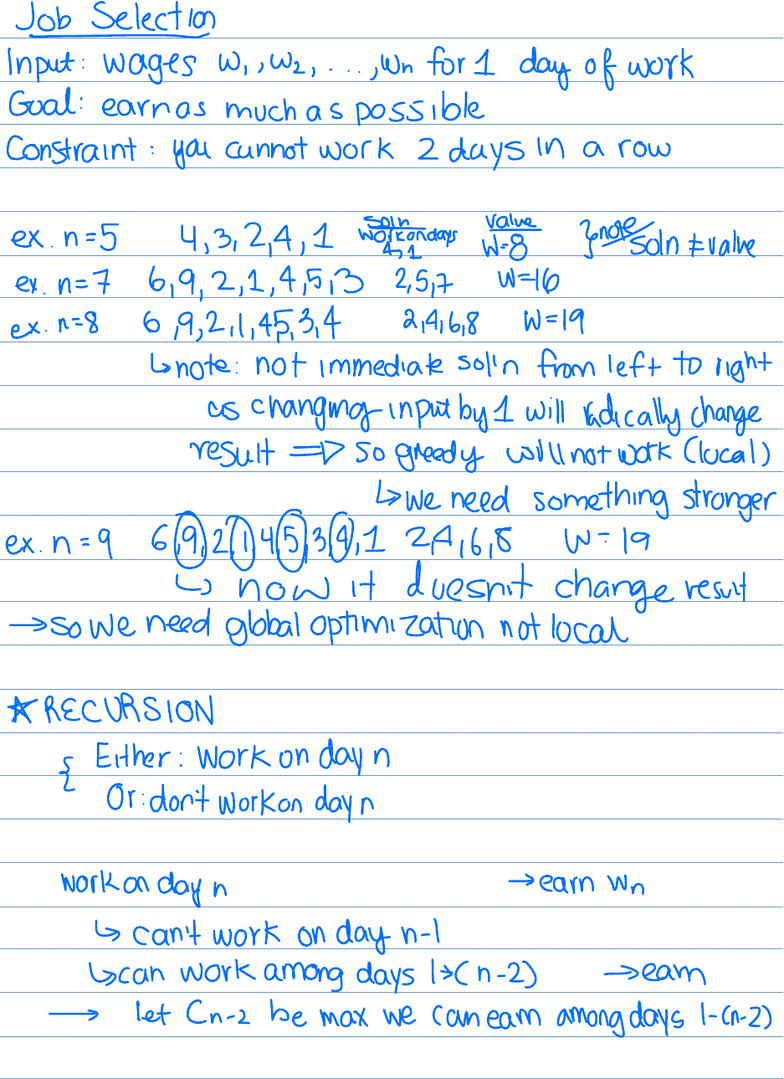 Job Selection
Input: wages w₁, w₂, ..., wn for 1 day of work
Goal: earn as much as possible
Constraint: you cannot work 2 days in a row
ex. n=5 4,3,2,4,1 soln work on days 4,1 value W=8 } note soln ≠ value
ex. n=7 6,9,2,1,4,5,3 2,5,7 W=16
ex. n=8 6,9,2,1,45,3,4 2,4,6,8 W=19
↳ note: not immediate sol'n from left to right
as changing input by 1 will radically change
result ⇒ so greedy will not work (local)
↳ we need something stronger
ex. n=9 6,9,2,1,4,5,3,4,1 2,4,6,8 W=19
↳ now it doesn't change result
→ so we need global optimization not local
★ RECURSION
{ Either: Work on day n
Or: don't work on day n
work on day n → earn wn
↳ can't work on day n-1
↳ can work among days 1→(n-2) → earn
→ let Cn-2 be max we can earn among days 1-(n-2)